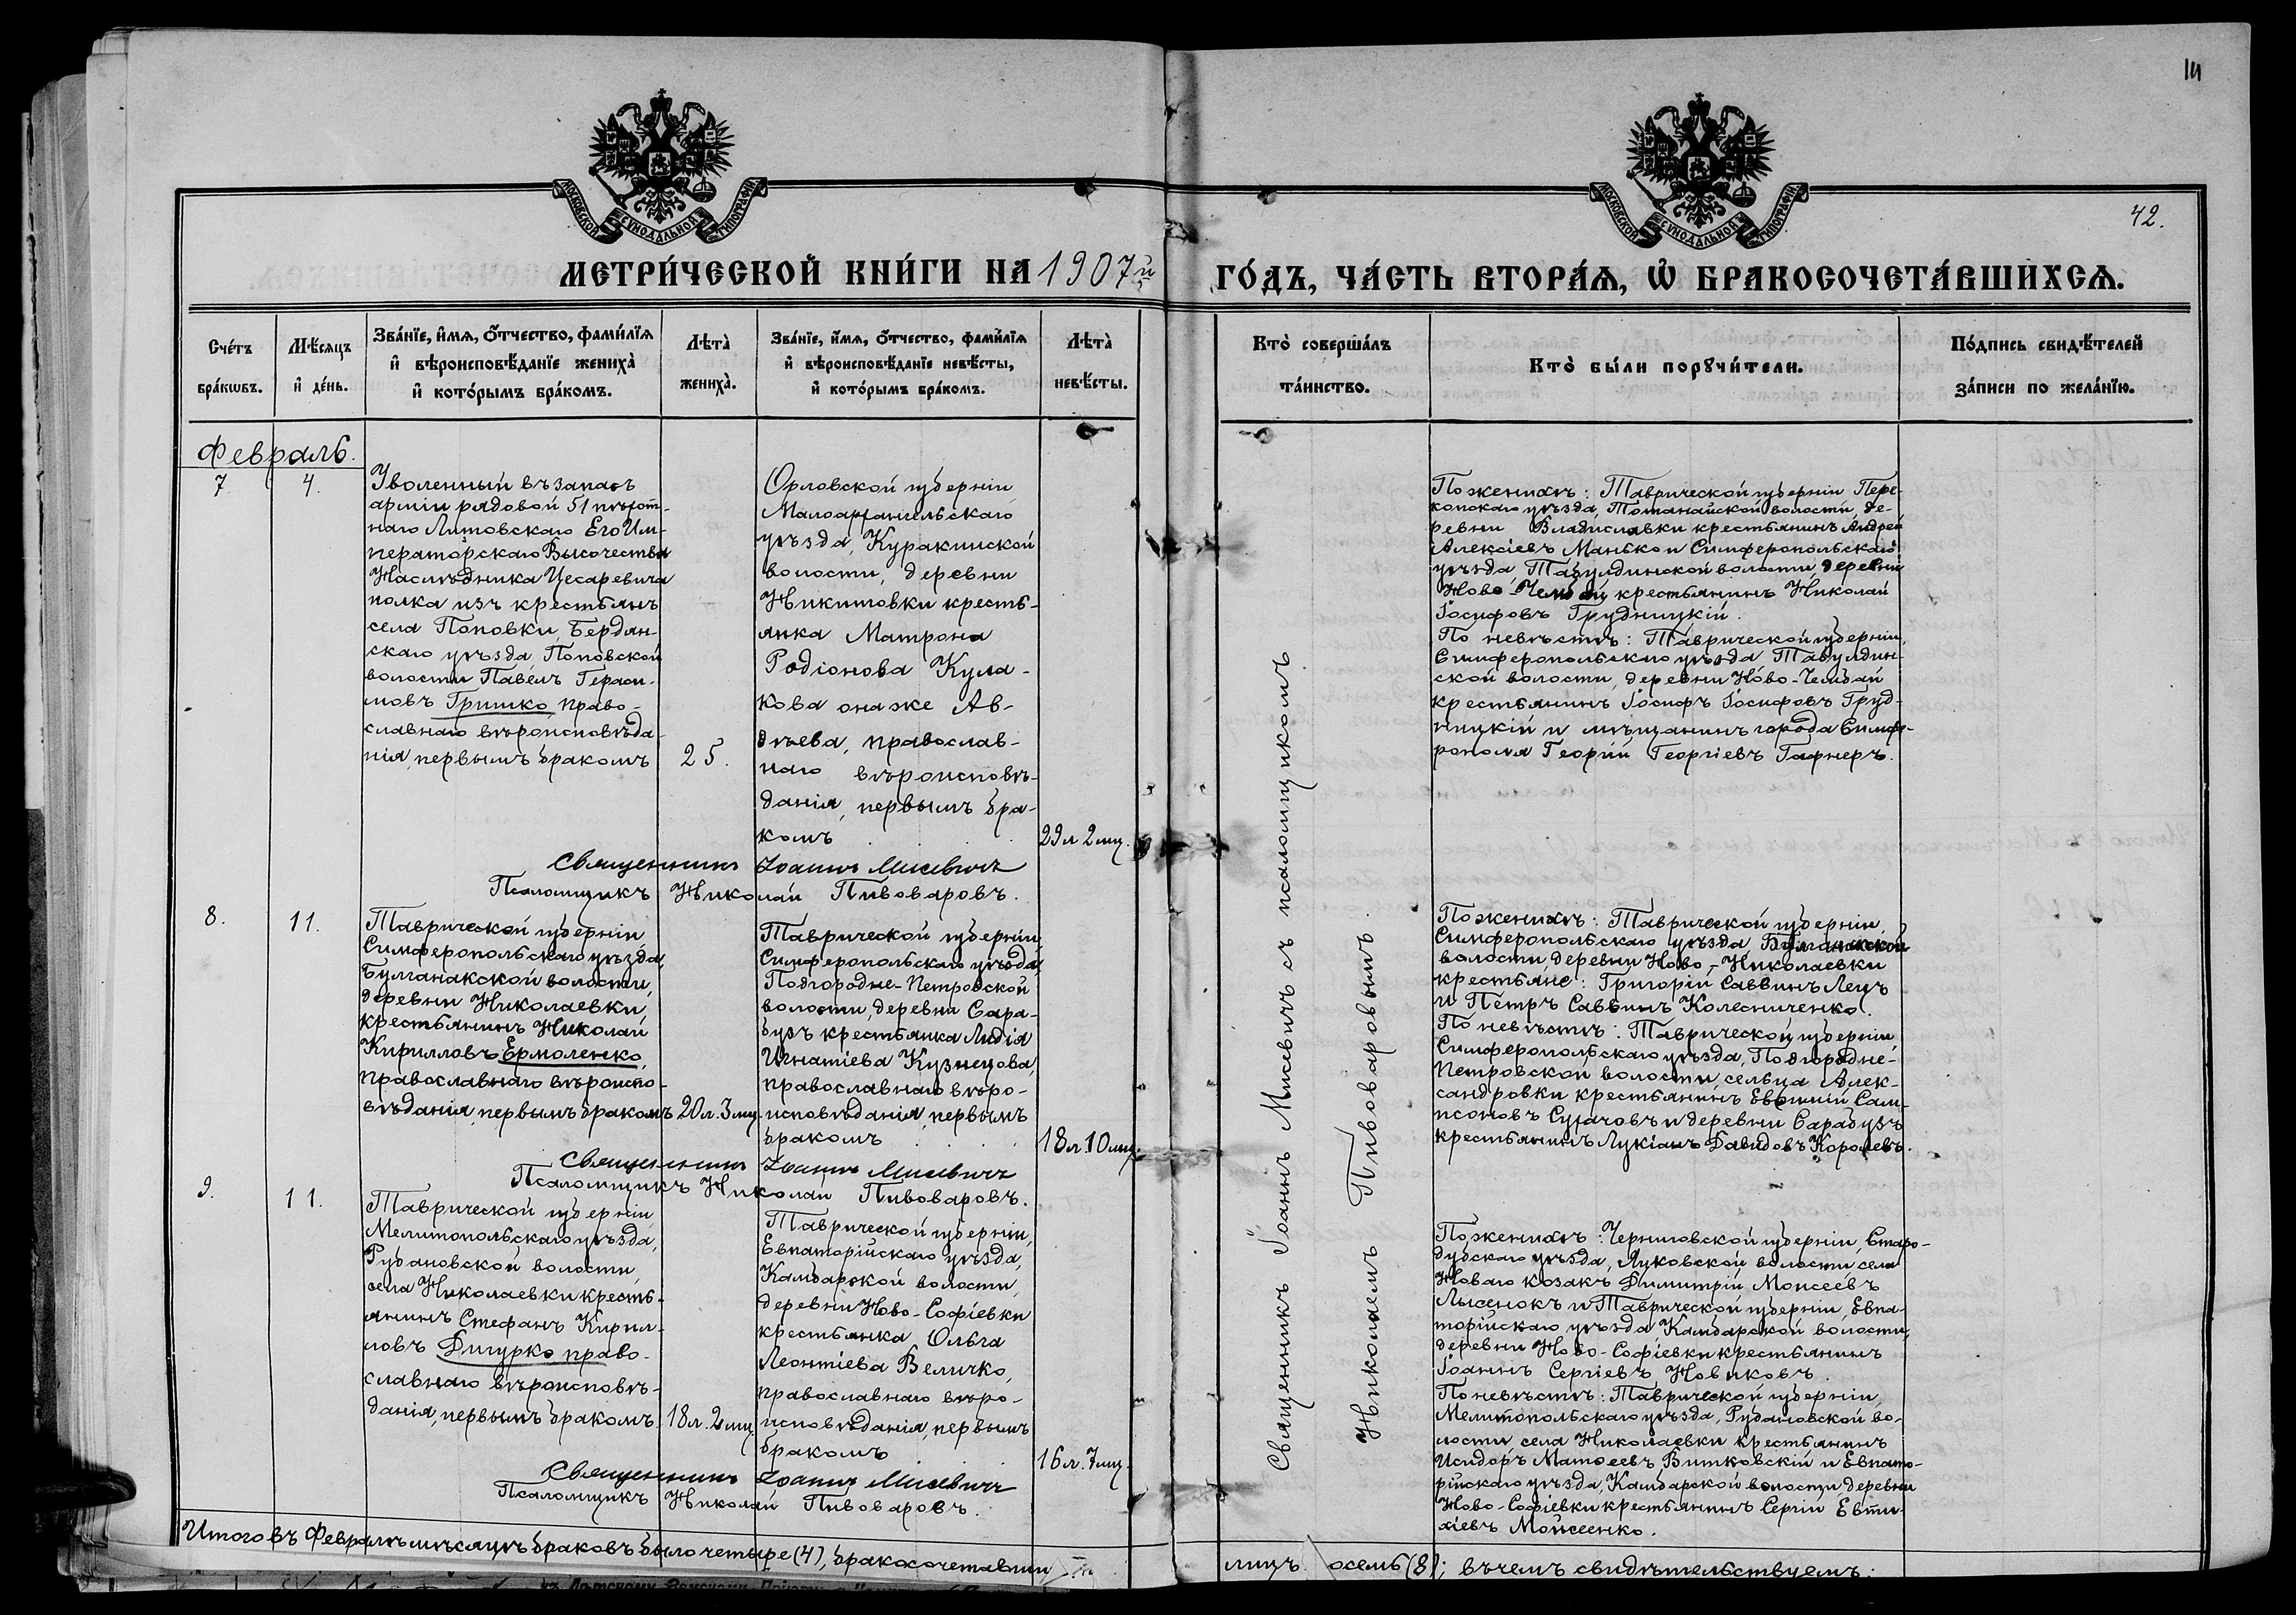 111
42.
МОСКОВСКОЙ СУНОДАЛЬНОЙ ТИПОГРАФІИ
МОСКОВСКОЙ СУНОДАЛЬНОЙ ТИПОГРАФІИ
МЕТРИ́ЧЕСКОЙ КНИ́ГИ НА 1907й ГО́ДЪ, ЧА́СТЬ ВТОРА́Ѧ, Ѽ БРАКОСОЧЕТА́ВШИХСѦ.
Сче́тъ бра́кѡвъ.
Мѣ́сяцъ и де́нь.
Зва́нїе, и́мѧ, о́тчество, фами́лїѧ
и вѣроисповѣ́данїе жениха̀
и кото́рымъ бра́комъ.
Лѣта̀ жениха̀.
Зва́нїе, и́мѧ, о́тчество, фами́лїѧ
и вѣроисповѣ́данїе невѣ́сты,
и кото́рымъ бра́комъ.
Лѣта̀ невѣ́сты.
Кто̀ соверша́лъ та́инство.
Кто̀ бы́ли порꙋчи́тели.
По́дпись свидѣ́телей
за́писи по жела́нїю.
Февраль.
7.
4.
Уволенный въ запасъ
арміи рядовой 51 пѣхот-
наго Литовскаго Его Им-
ператорскаго Высочества
Наслѣдника Цесаревича
полка изъ крестьянъ
села Поповки, Бердян-
скаго уѣзда Поповской
волости Павелъ Гераси-
мовъ Гришко, право-
славнаго вѣроисповѣда-
нія, первымъ бракомъ
25.
Орловской губерніи
Малоархангельскаго
уѣзда, Куракинской
волости, деревни
Никитовки кресть-
янка Матрона
Родіонова Кула-
кова она же Ав-
дѣева, православ-
наго вѣроисповѣ-
данія, первымъ бра-
комъ
29 л 2 мц.
Священникъ Іоаннъ Мисевичъ
Псаломщикъ Николай Пивоваровъ.
Священникъ Іоаннъ Мисевичъ съ псаломщикомъ
Николаемъ Пивоваровымъ.
По женихѣ: Таврической губерніи Пере-
копскаго уѣзда, Потанайской волости, де-
ревни Владиславки крестьянинъ Андрей
Алексіевъ Манько и Симферопольскаго
уѣзда Табулдинской волости деревни
Ново-Челбай крестьянинъ Николай
Іосифовъ Грудницкій.
По невѣстѣ: Таврической губерніи,
Симферопольскаго уѣзда Табулдин-
ской волости, деревни Ново-Челбай
крестьянинъ Іосифъ Іосифовъ Груд-
ницкій и мѣщанинъ города Симфе-
рополя Георгій Георгіевъ Гафнеръ.
8.
11.
Таврической губерніи
Симферопольскаго уѣзда,
Булганакской волости,
деревни Николаевки,
крестьянинъ Николай
Кирилловъ Ермоленко,
православнаго вѣроиспо-
вѣданія, первымъ бракомъ
20 л. 3 мц.
Таврической губерніи,
Симферопольскаго уѣзда,
Подгородне-Петровской
волости, деревни Сара-
бузъ крестьянка Лидія
Игнатіева Кузнецова,
православнаго вѣро-
исповѣданія, первымъ
бракомъ
18 л. 10 мц.
Священникъ Іоаннъ Мисевичъ
Псаломщикъ Николай Пивоваровъ.
По женихѣ: Таврической губерніи,
Симферопольскаго уѣзда, Булганакской
волости, деревни Ново-Николаевки
крестьяне: Григорій Саввинъ Лецъ
и Петръ Саввинъ Колесниченко.
По невѣстѣ: Таврической губерніи
Симферопольскаго уѣзда, Подгородне-
Петровской волости, сельца Алек-
сандровки крестьянинъ Евфимій Сам-
псоновъ и деревни Сарабузъ
крестьянинъ Лукіанъ Давидовъ Королевъ.
9.
11.
Таврической губерніи
Мелитопольскаго уѣзда,
Рубановской волости,
села Николаевки кресть-
янинъ Стефанъ Кирил-
ловъ Дигурко, право-
славнаго вѣроисповѣ-
данія, первымъ бракомъ
18 л. 2 мц.
Таврической губерніи,
Евпаторійскаго уѣзда,
Камбарской волости,
деревни Ново-Софіевки
крестьянка Ольга
Леонтіева Величко,
православнаго вѣро-
исповѣданія, первымъ
бракомъ
16 л. 7 мц.
Священникъ Іоаннъ Мисевичъ
Псаломщикъ Николай Пивоваровъ.
По женихѣ: Черниговской губерніи, Старо-
дубскаго уѣзда, Луковской волости села
Новаго козакъ Димитрій Моисеевъ
Лысенокъ и Таврической губерніи, Евпа-
торійскаго уѣзда, Камбарской волости,
деревни Ново-Софіевки крестьянинъ
Іоаннъ Сергіевъ Новиковъ.
По невѣстѣ: Таврической губерніи,
Мелитопольскаго уѣзда, Рубановской во-
лости, села Николаевки крестьянинъ
Исидоръ Матѳеевъ Витковскій и Евпато-
рійскаго уѣзда, Камбарской волости, деревни
Ново-Софіевки крестьянинъ Сергій Евти-
хіевъ Мойсеенко.
Итого въ Февралѣ мѣсяцѣ браковъ было четыре (4), бракосочетавши
лицъ осемь (8); въ чемъ свидѣтельствуемъ: